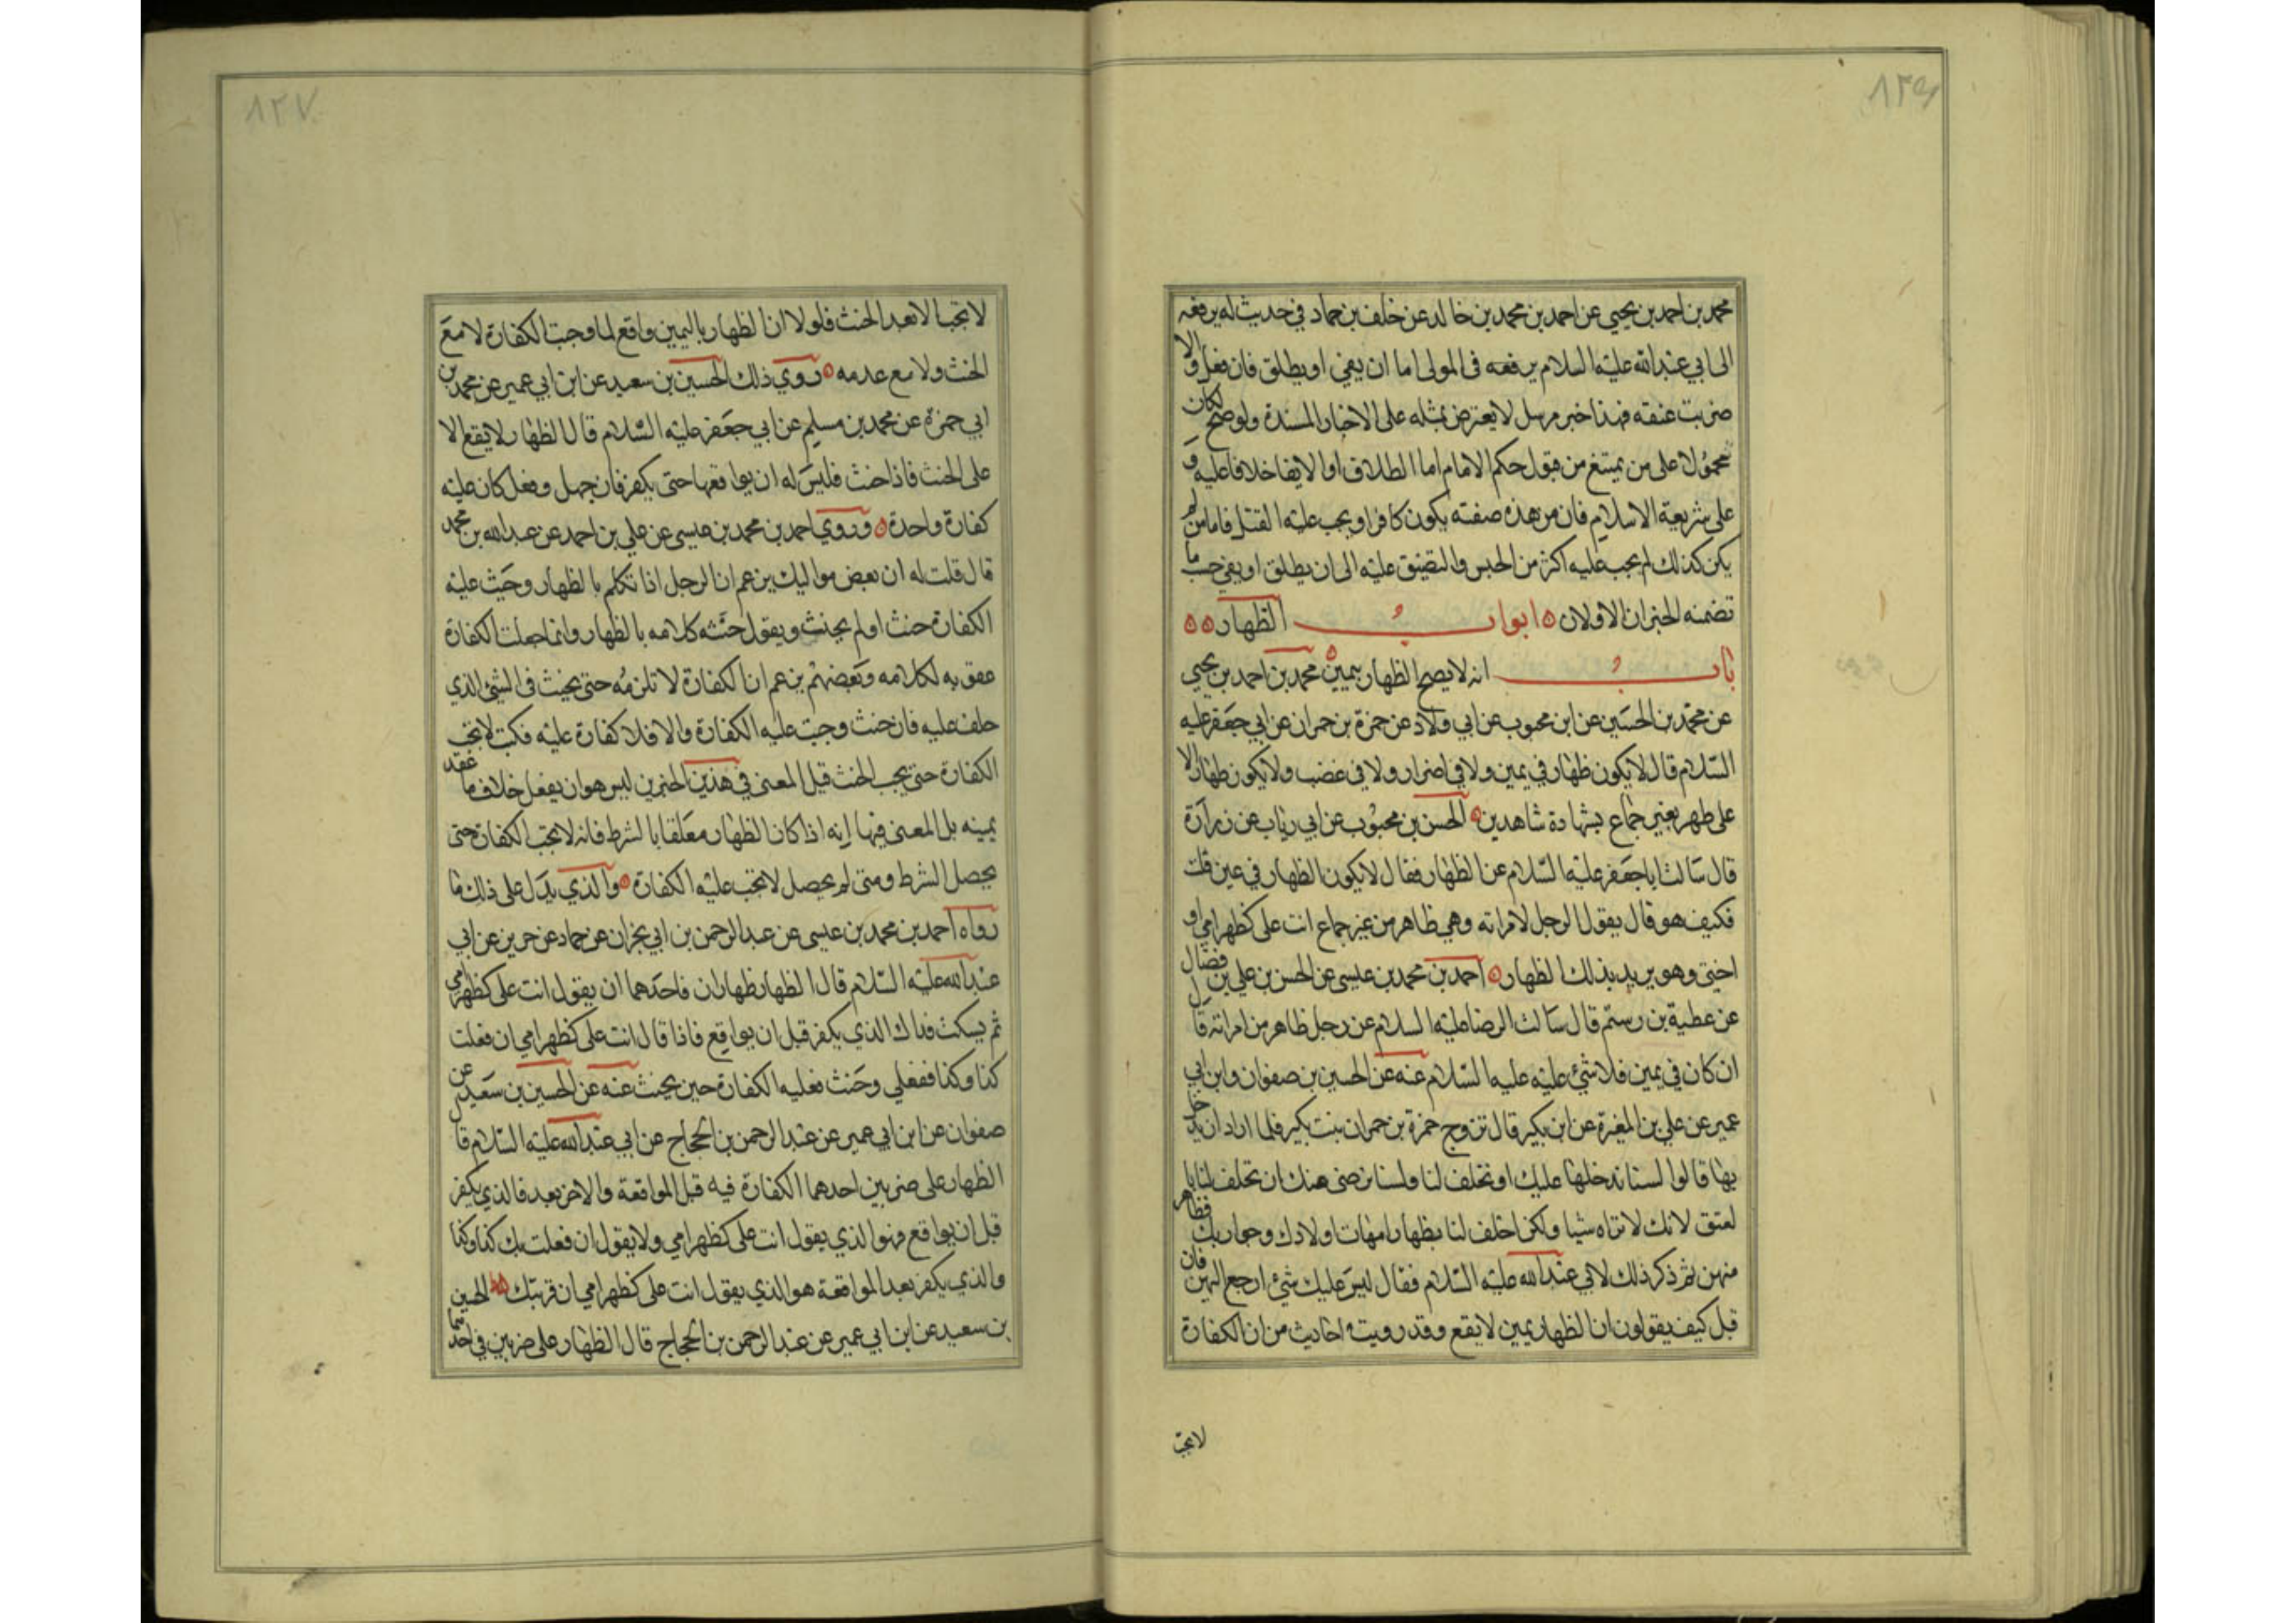 ٨٢٦
محمد بن احمد بن يحيي عن احمد بن محمد بن خالد عن خلف بن حماد في حديث له يرفعه
الى ابي عبد الله عليه السلام يرفعه في المولى اما ان يفي او يطلق فان فعل والا
ضربت عنقه فهذا خبر مرسل لا يعترض بمثله على الاخبار المسندة ولو صح لكان
محمولا على من يمتنع من قبول حكم الامام اما الطلاق اوالايفا خلافا عليه و
على شريعة الاسلام فان من هذه صفته يكون كافرا ويجب عليه القتل فاما من لم
يكن كذلك لم يجب عليه اكثر من الحبس والتضيق عليه الى ان يطلق او يفي حسب ما
تضمنه الخبران الاولان ابواب الظهار
باب انه لا يصح الظهار بيمين محمد بن احمد بن يحيي
عن محمد بن الحسين عن ابن محبوب عن ابي ولاد عن حمزة بن حمران عن ابي جعفر عليه
السلام قال لا يكون ظهار في يمين ولا في اضرار ولا في غضب ولا يكون ظهار الا
على طهر بغير جماع بشهادة شاهدين الحسن بن محبوب عن ابي رياب عن زرارة
قال سالت ابا جعفر عليه السلام عن الظهار فقال لا يكون الظهار في عين قلت
فكيف هو قال يقول الرجل لامراته وهي طاهر من غير جماع انت على كظهر امي او
اختي وهو يريد بذلك الظهار احمد بن محمد بن عيسى عن الحسن بن علي بن فضال
عن عطية بن رستم قال سالت الرضا عليه السلام عن رجل ظاهر من امراته قال
ان كان في يمين فلا شئ عليه عليه السلام عنه عن الحسين بن صفوان وابن ابي
عمير عن علي بن المغيرة عن ابن بكير قال تزوج حمزة بن حمران بنت بكير فلما اراد ان يدخل
بها قالوا لسنا ندخلها عليك او تحلف لنا ولسنا نرضى منك ان تحلف لنا با
لعتق لانك لا تراه شيا ولكن احلف لنا بظهار امهات اولادك وجواريك فظاهر
منهن ثم ذكر ذلك لابي عبد الله عليه السلام فقال ليس عليك شئ ارجع اليهن فان
قبل كيف يقولون ان الظهار بيمين لا يقع وقد رويت احاديث من ان الكفارة
لا تجب
٨٢٧
لا تجب الا بعد الحنث فلولا ان الظهار باليمين واقع لما وجبت الكفارة لا مع
الحنث ولا مع عدمه روي ذلك الحسين بن سعيد عن ابن ابي عمير عن محمد بن
ابي حمزة عن محمد بن مسلم عن ابي جعفر عليه السلام قال الظهار لا يقع الا
على الحنث فاذا حنث فليس له ان يواقعها حتى يكفر فان جهل وفعل كان عليه
كفارة واحدة وروي احمد بن محمد بن عيسى عن علي بن احمد عن عبد الله بن محمد
قال قلت له ان بعض مواليك يزعم ان الرجل اذا تكلم بالظهار وجبت عليه
الكفارة حنث او لم يحنث ويقول حنثه كلامه بالظهار وانما جعلت الكفارة
عقوبه لكلامه وبعضهم يزعم ان الكفارة لا تلزمه حتى يحنث في الشئ الذي
حلف عليه فان حنث وجبت عليه الكفارة والا فلا كفارة عليه فكتب لا تجب
الكفارة حتى يجب الحنث قيل المعنى في هذين الخبرين ليس هو ان يفعل خلاف ما عقد
يمينه بل المعنى فيها انه اذا كان الظهار معلقا بالشرط فانه لا تجب الكفارة حتى
يحصل الشرط ومتى لم يحصل لا تجب عليه الكفارة والذي يدل على ذلك ما
رواه احمد بن محمد بن عيسى عن عبد الرحمن بن ابي نجران عن حماد عن حريز عن ابي
عبد الله عليه السلام قال الظهار ظهاران فاحدهما ان يقول انت على كظهر امي
ثم يسكت فذاك الذي يكفر قبل ان يواقع فاذا قال انت على كظهر امي ان فعلت
كذا وكذا ففعل وحنث فعليه الكفارة حين يحنث عنه عن الحسين بن سعيد عن
صفوان عن ابن ابي عمير عن عبد الرحمن بن الحجاج عن ابي عبد الله عليه السلام قال
الظهار على ضربين احدهما الكفارة فيه قبل المواقعة والاخر بعد فالذي يكفر
قبل ان يواقع فهو الذي يقول انت على كظهر امي ولا يقول ان فعلت بك كذا وكذا
والذي يكفر بعد المواقعة هو الذي يقول انت على كظهر امي ان قربتك الحسين
بن سعيد عن ابن ابي عمير عن عبد الرحمن بن الحجاج قال الظهار على ضربين في احدهما